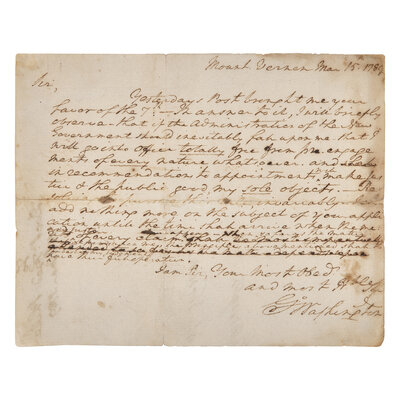 Mount Vernon Mar 15th 1789
Sir,
Yesterdays Post brought me your
favor of the 7th.—In answer to it, I will briefly
observe that if the Administration of the New
Government should inevitably fall upon me that I
will go into Office totally free from pre-engage
ments of every nature whatsoever, and
in recommendations to appointments make jus
tice & the public good, my sole objects.—
invariably
add nothing more on the subject of your appli
cation until the time shall arrive when the
of every
have their operation.
I am Sir, Your Most Obed
and most Hble Sr
Go Washington